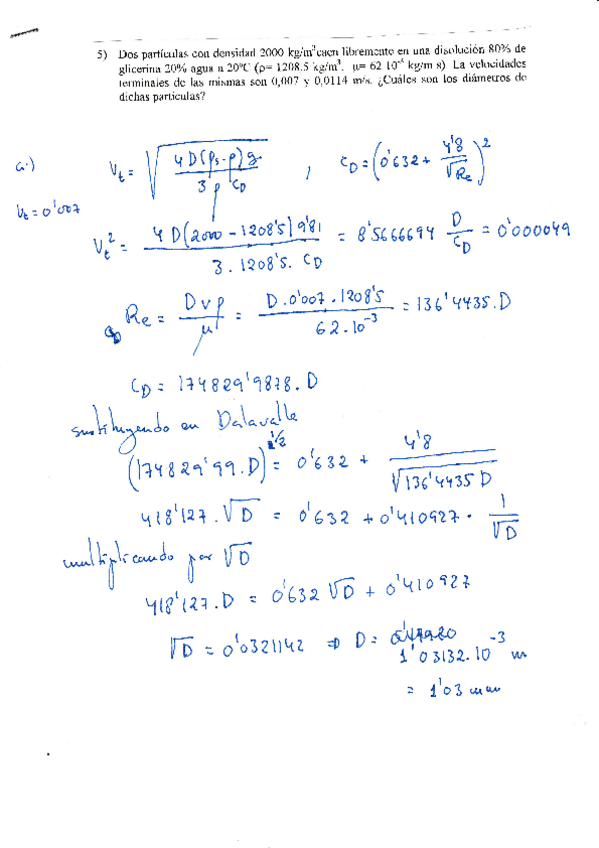 5) Dos partículas con densidad 2000 kg/m³ caen libremente en una disolución 80% de
glicerina 20% agua a 20ºC (ρ= 1208.5 kg/m³. μ= 62 10⁻³ kg/m s) La velocidades
terminales de las mismas son 0,007 y 0,0114 m/s. ¿Cuáles son los diámetros de
dichas partículas?
a.) Vt = √(4 D(ρs-ρ) g / 3 ρ CD) , CD = (0'632 + 4'8/√Re)²
Vt = 0'007
Vt² = 4 D(2000 - 1208'5) 9'81 / 3. 1208'5. CD = 8'5666694 D/CD = 0'000049
Re = D v ρ / μ = D. 0'007. 1208'5 / 62.10⁻³ = 136'4435. D
CD = 174829'9878. D
sustituyendo en Dalavalle
(174829'99. D)^1/2 = 0'632 + 4'8/√136'4435 D
418'127. √D = 0'632 + 0'410927 · 1/√D
multiplicando por √D
418'127. D = 0'632 √D + 0'410927
√D = 0'0321142 ⇒ D =
1'03132.10⁻³ m
= 1'03 mm